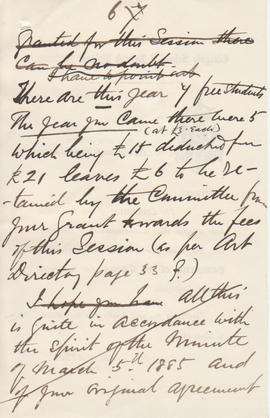 6
granted for this Session there
Can be no doubt
I have to point out
There are this year 7 free students
The year you came there were 5
(at £3. each)
which being £15 deducted from
£21 leaves £6 to be re-
tained by the Committee from
your Grant towards the fees
of this Session (as per Art
Directory page 33 )
I hope you have all this
is quite in accordance with
the Spirit of the Minute
of March 5th 1885 and
of your original agreement